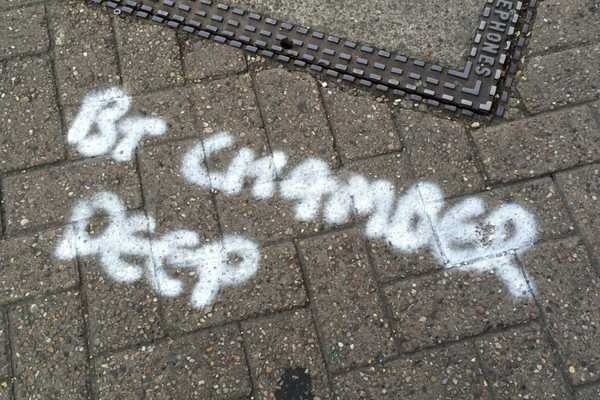 EPHONES
BT CHAMBER
DEEP